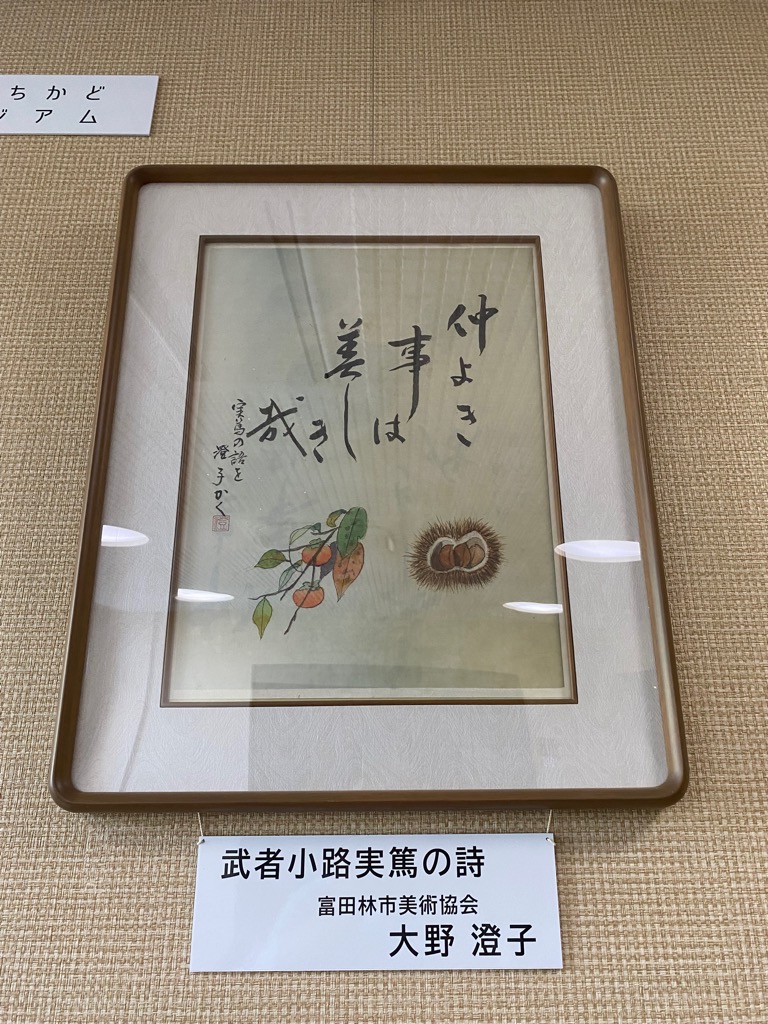 ちかど
ジアム
仲よき
事は
美しき
哉
実篤の語を
澄子かく
武者小路実篤の詩
富田林市美術協会
大野 澄子